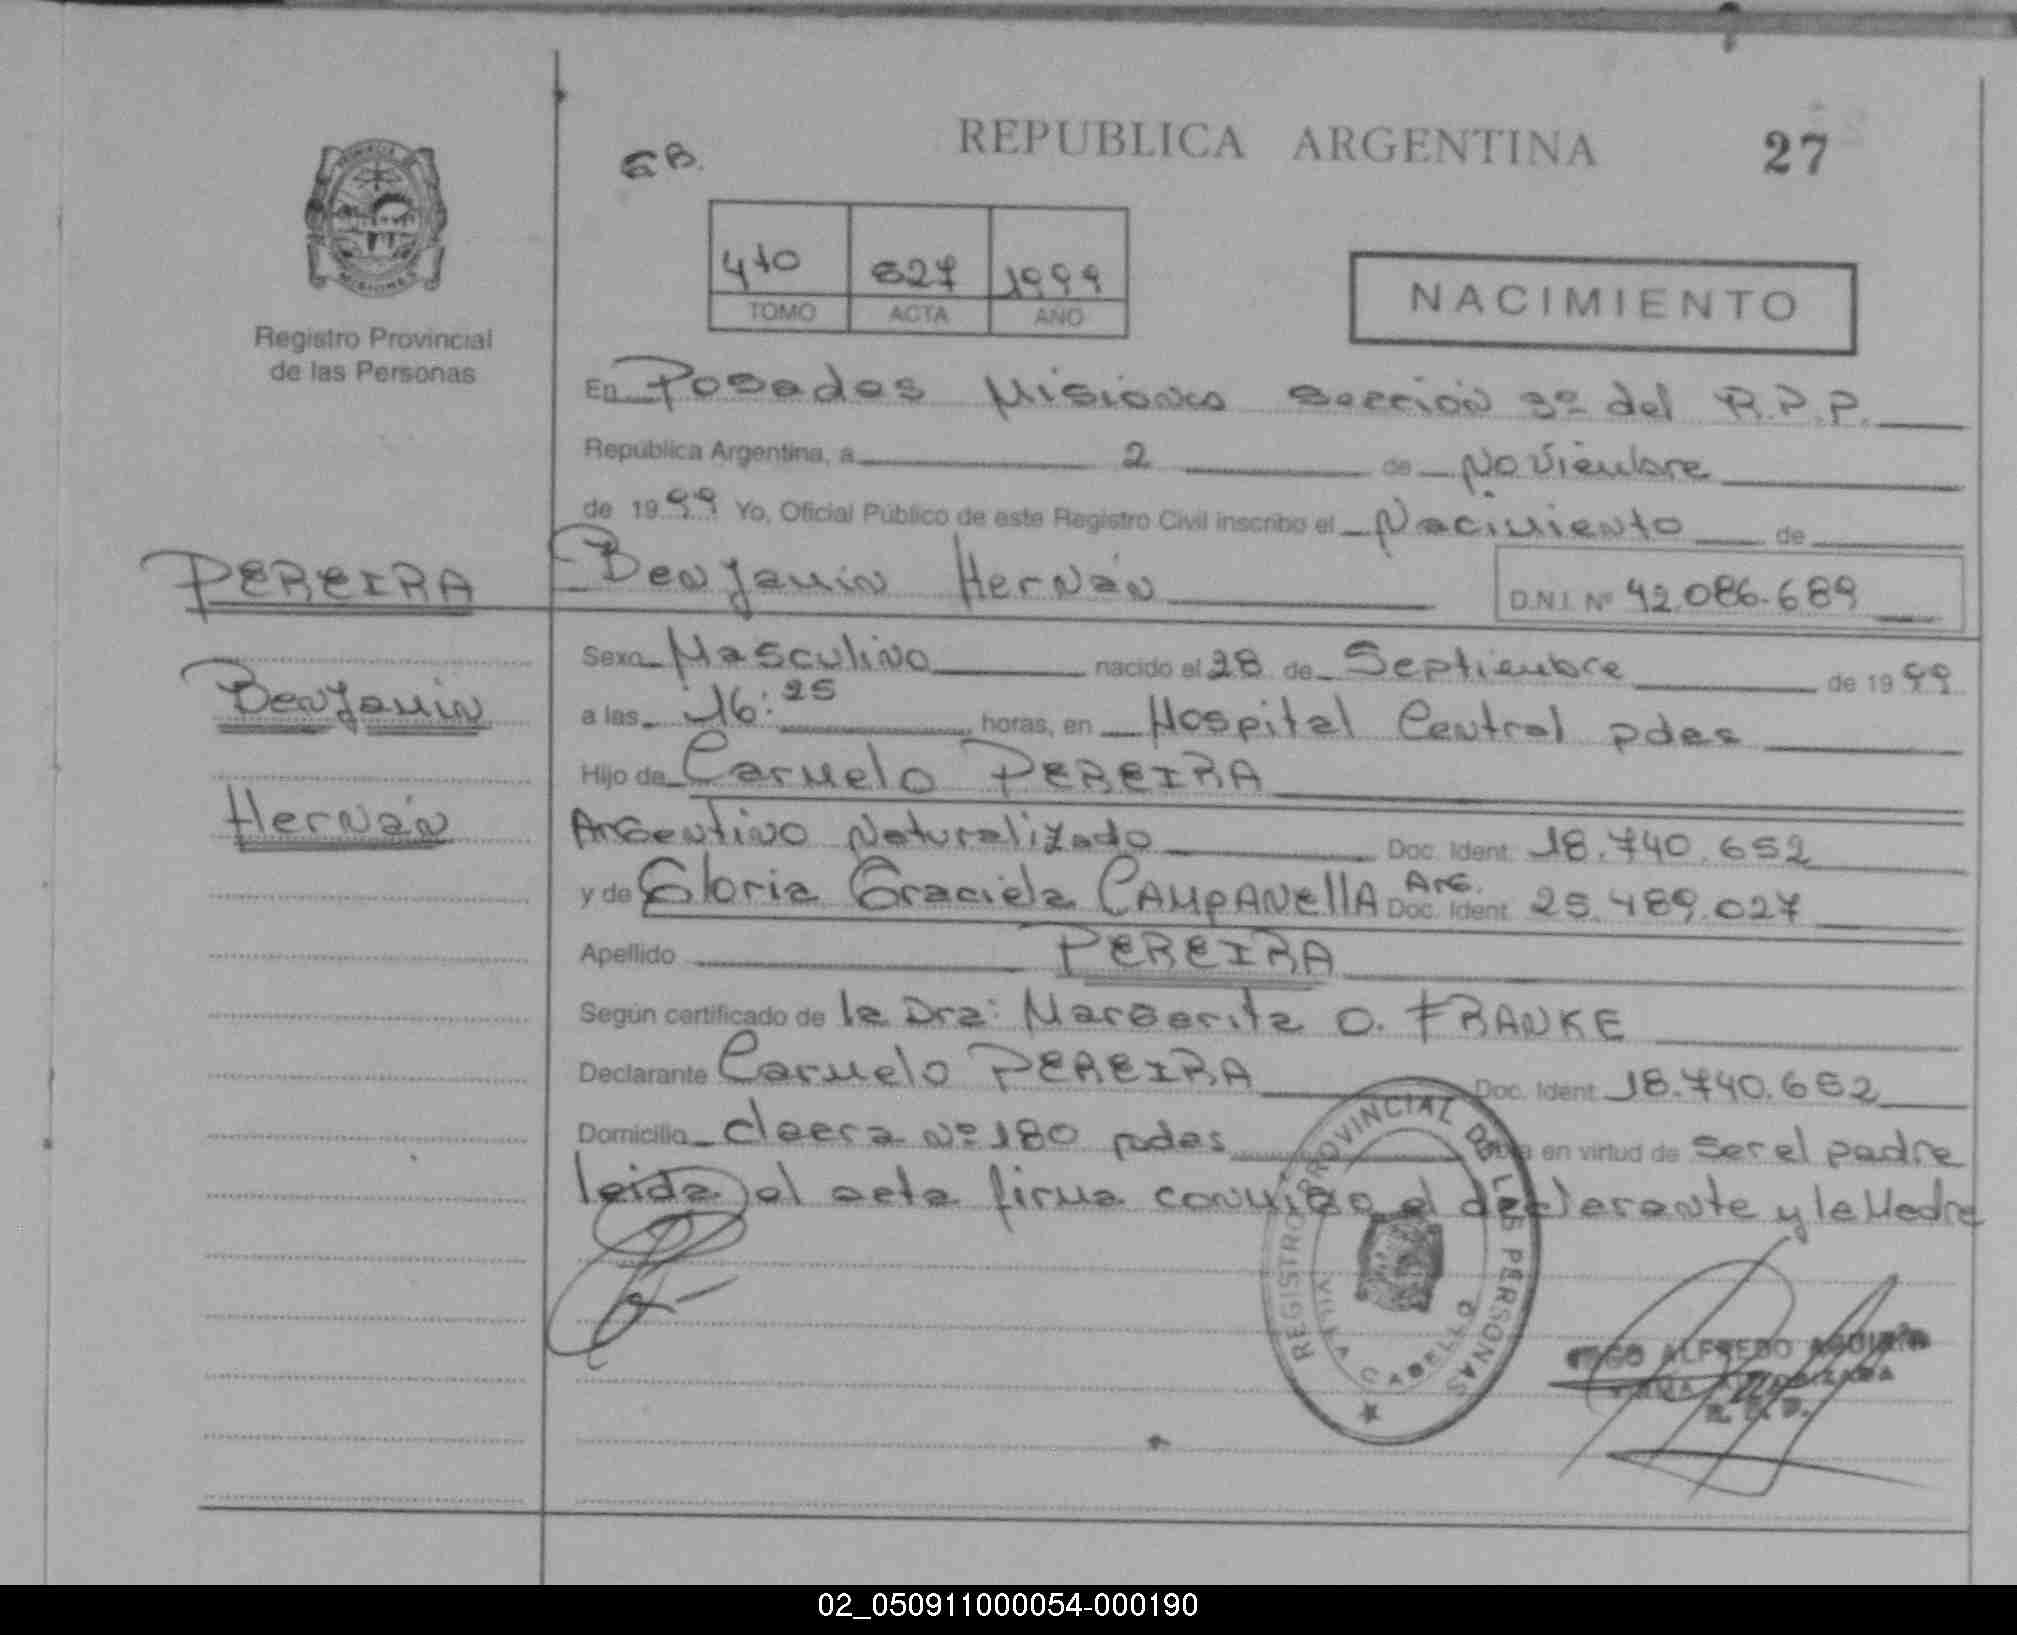 REPUBLICA ARGENTINA
27
G B.
410 827 1999
TOMO ACTA AÑO
NACIMIENTO
Registro Provincial
de las Personas
En Posadas Misiones sección 3º del R.P.P.
República Argentina, a 2 de Noviembre
de 1999 Yo, Oficial Público de este Registro Civil inscribo el Nacimiento de
PEREIRA Benjamin Hernán D.N.I. Nº 42.086.689
Sexo Masculino nacido el 28 de Septiembre de 1999
Benjamin
a las 16:25 horas, en Hospital Central pdas
Hijo de Carmelo PEREIRA
Hernán
Argentino Naturalizado Doc. Ident. 18.740.652
y de Gloria Graciela CAMPANELLA Arg. Doc. Ident. 25.489.027
Apellido PEREIRA
Según certificado de la Dra: Margarita O. FRANKE
Declarante Carmelo PEREIRA Doc. Ident. 18.740.652
Domicilio chacra Nº 180 pdas en virtud de ser el padre
leida el acta firma conmigo el declarante y la Madre
REGISTRO PROVINCIAL DE LAS PERSONAS
VILLA CABELLO
ALFREDO
02_050911000054-000190